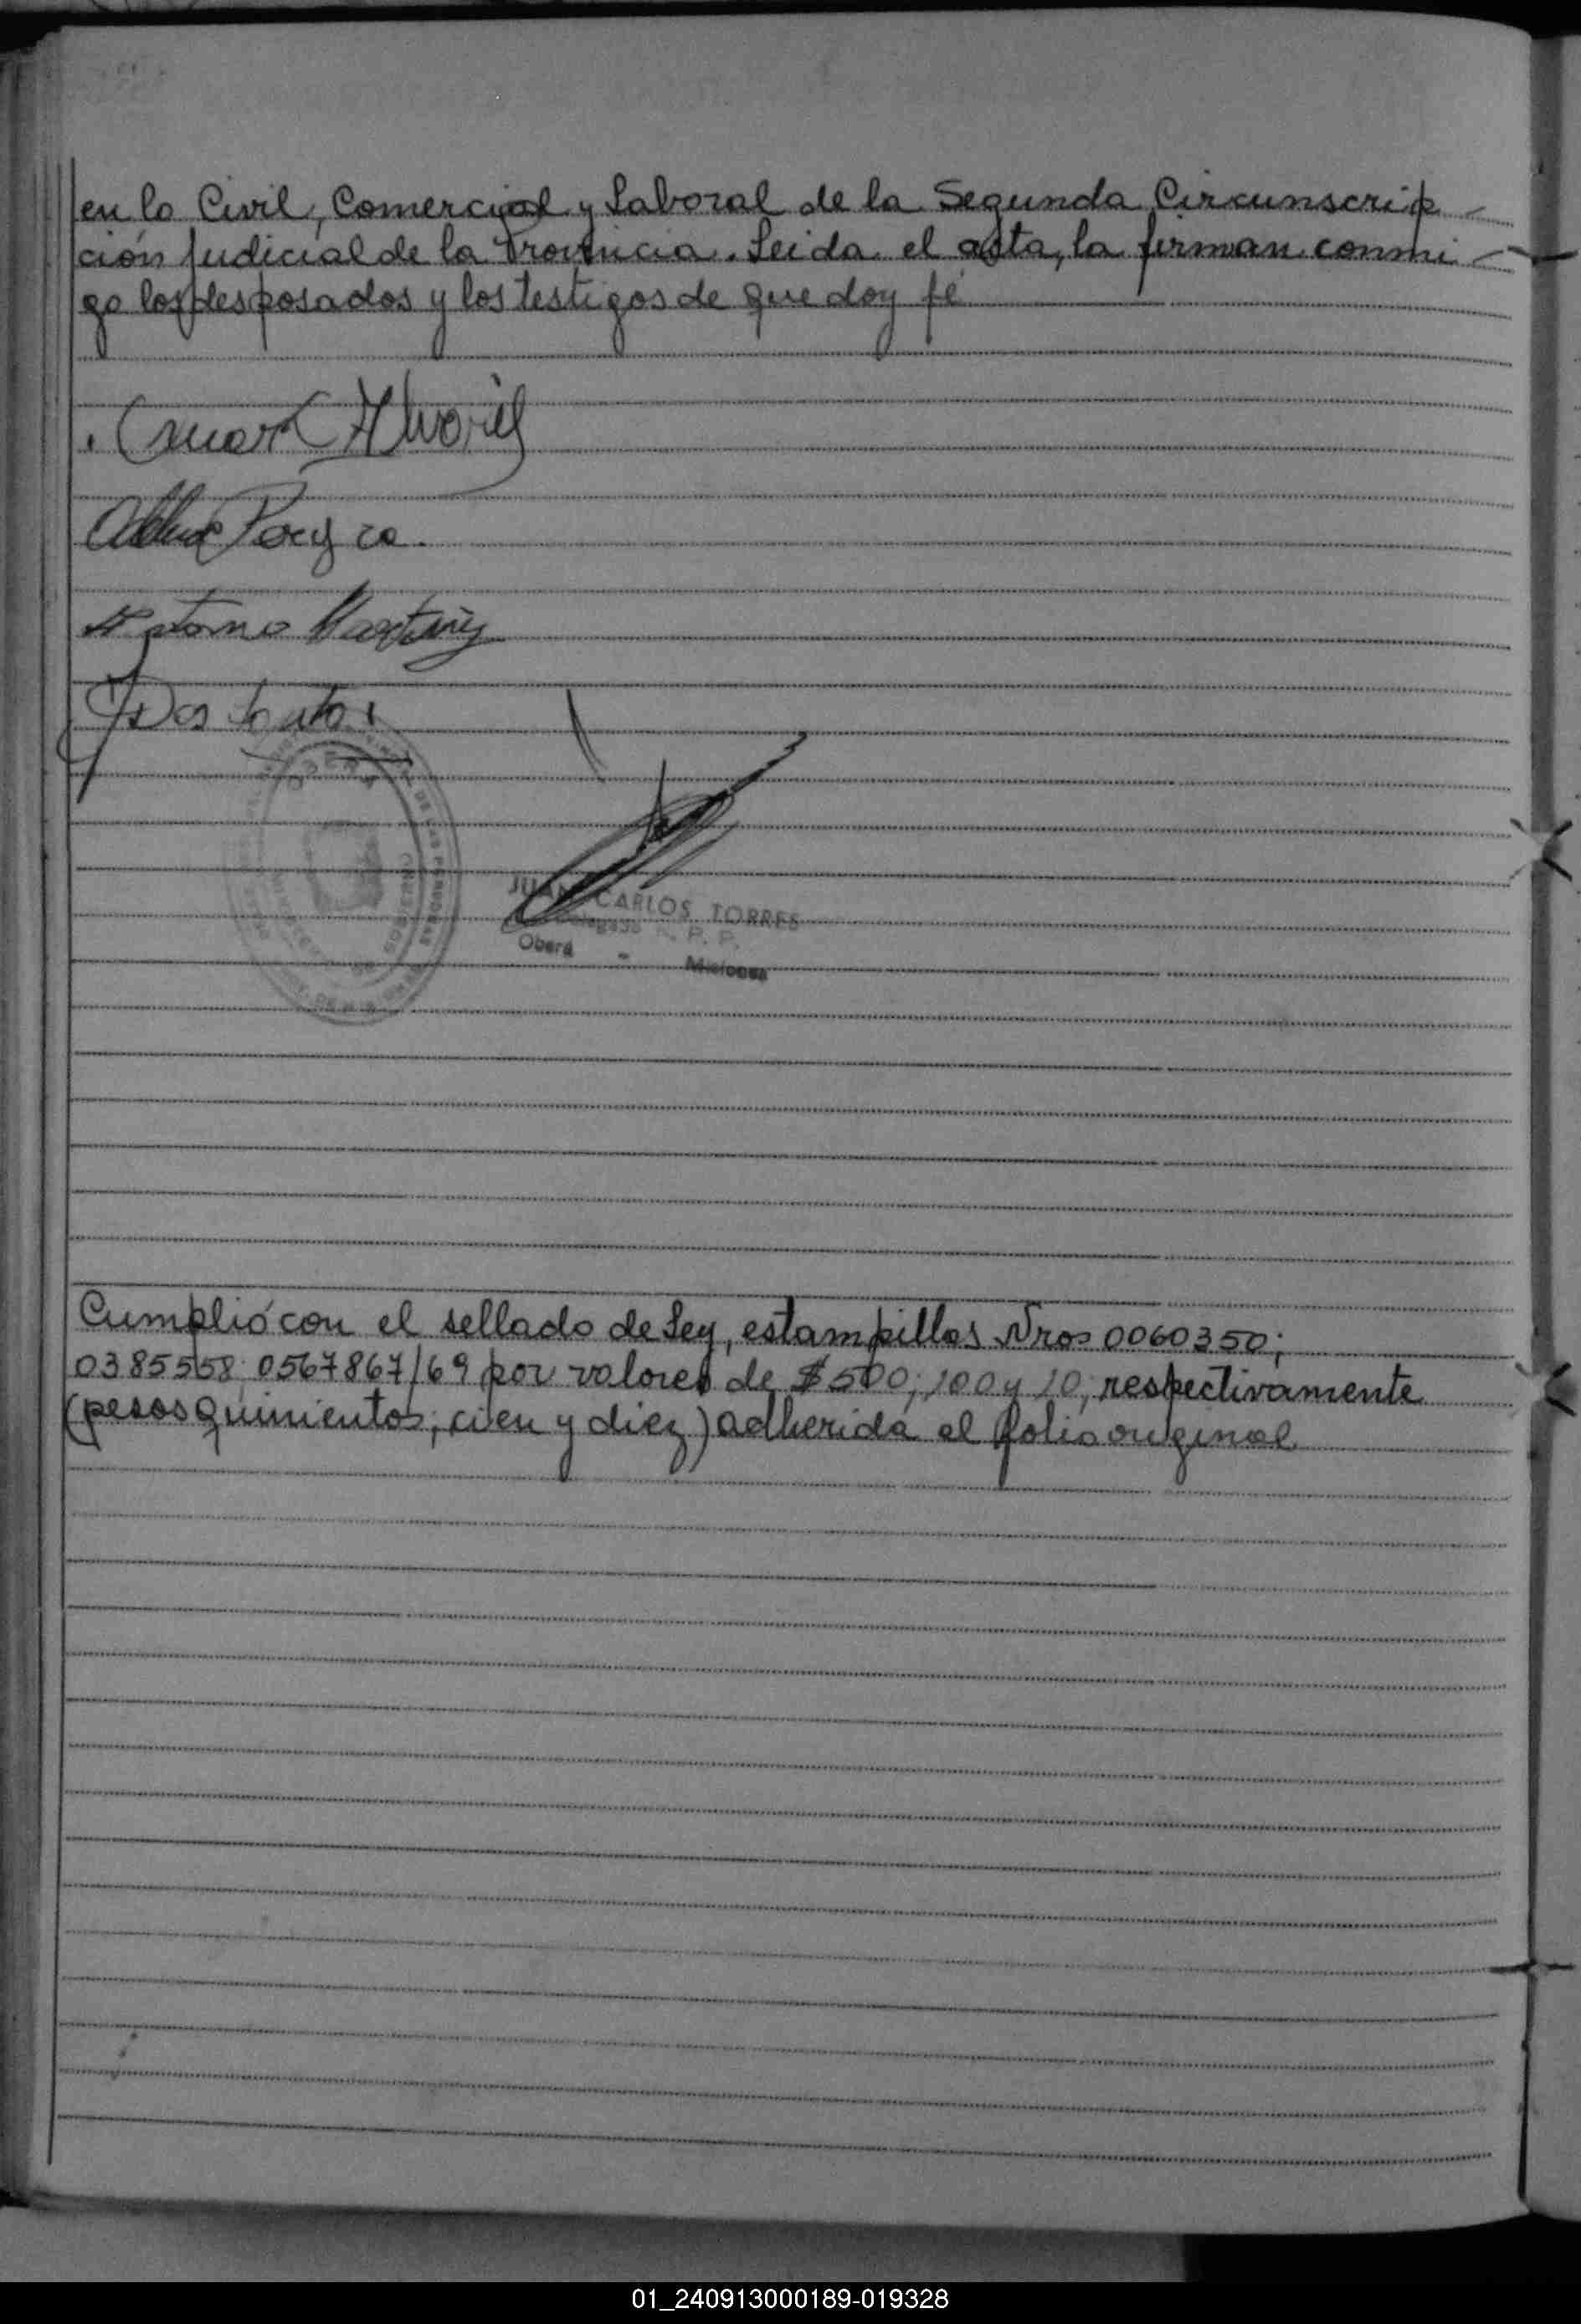 en lo Civil, Comercial y Laboral de la Segunda Circunscrip
ción Judicial de la Provincia. Leida el acta, la firman conmi
go los desposados y los testigos de que doy fé
Omar Alvarez
Pereyra
Antonio Martinez
Dos Santos
JUAN CARLOS TORRES
Delegado R. P. P.
Oberá - Misiones
Cumplió con el sellado de Ley, estampillas Nros 0060350;
0385558; 0567867/69 por valores de $ 500; 100 y 10; respectivamente
(pesos quinientos, cien y diez) adherida al folio original
01_240913000189-019328